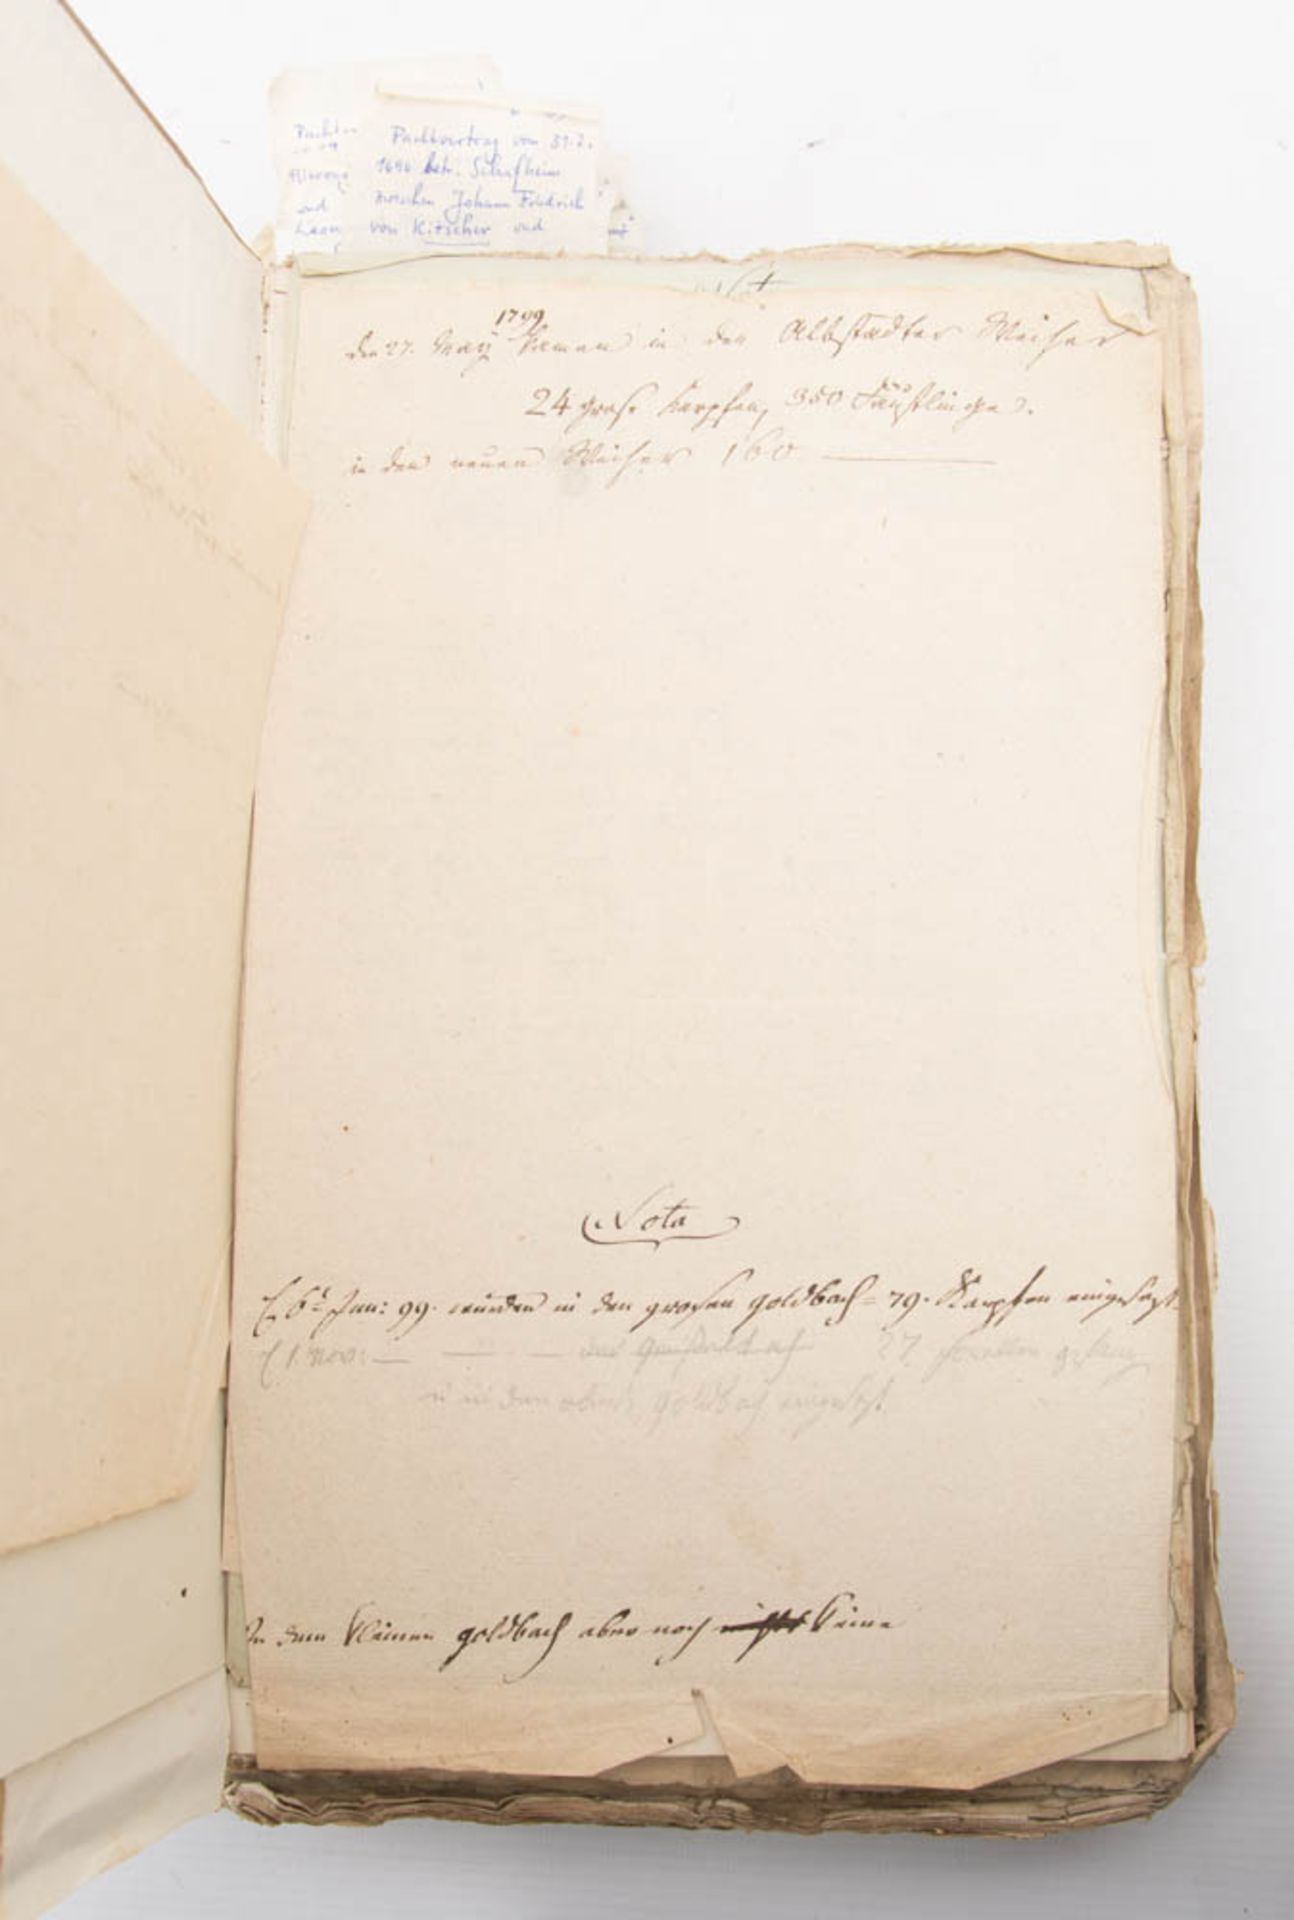 Pachtvertrag vom 31.2.
1696 betr. Schafheim
zwischen Johann Friedrich
von Kitscher und
und
1799
den 27. May kamen in den Albstädter Weiher
24 große Karpfen, 350 Fäustlinge
in den neuen Weiher 160
Nota
Jan: 99. wurden in den grosen goldbach 79. Karpfen eingesezt
1. Nov: 27 forellen
u in den goldbach eingesezt
In dem kleinen goldbach aber noch keine